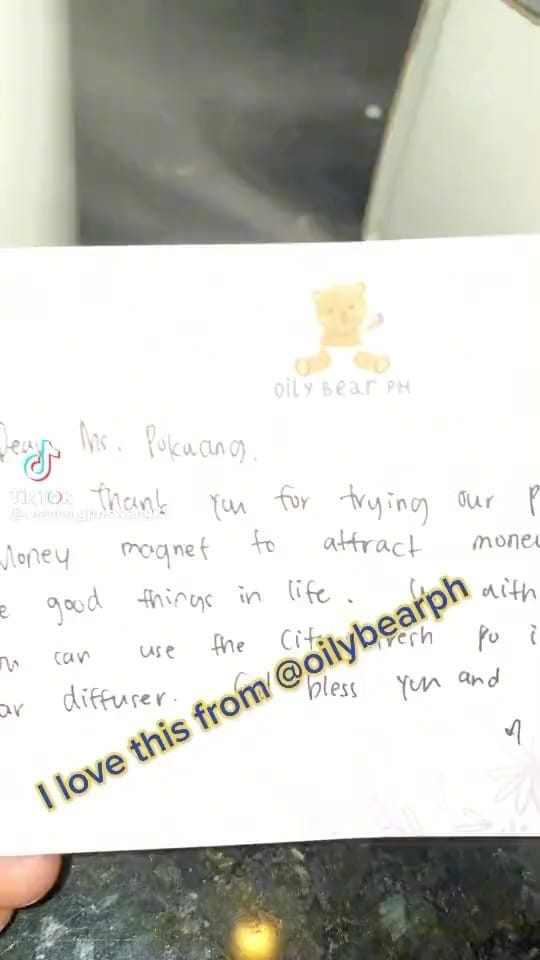 OILY BEAR PH
Dear Ms. Pokwang,
Thank you for trying our P
Money magnet to attract money
good things in life.
can use the Fresh po
diffuser. bless you and
TikTok
I love this from @oilybearph